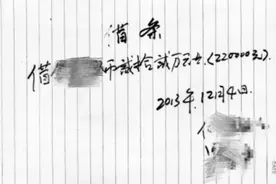 借条
借 币贰拾贰万元整（220000元）.
2013年12月4日.